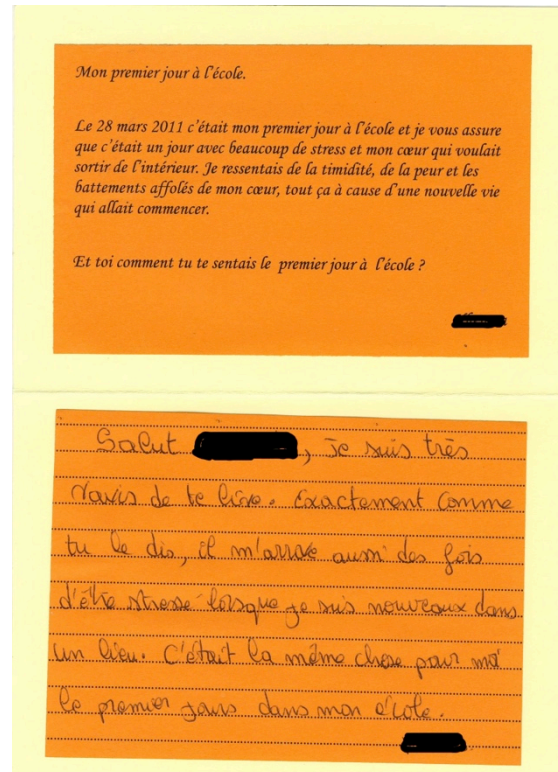 Mon premier jour à l'école.
Le 28 mars 2011 c'était mon premier jour à l'école et je vous assure
que c'était un jour avec beaucoup de stress et mon cœur qui voulait
sortir de l'intérieur. Je ressentais de la timidité, de la peur et les
battements affolés de mon cœur, tout ça à cause d'une nouvelle vie
qui allait commencer.
Et toi comment tu te sentais le premier jour à l'école ?
Salut , je suis très
ravis de te lire. Exactement comme
tu le dis, il m'arrive aussi des fois
d'être stressé lorsque je suis nouveaux dans
un lieu. C'était la même chose pour moi
le premier jours dans mon école.